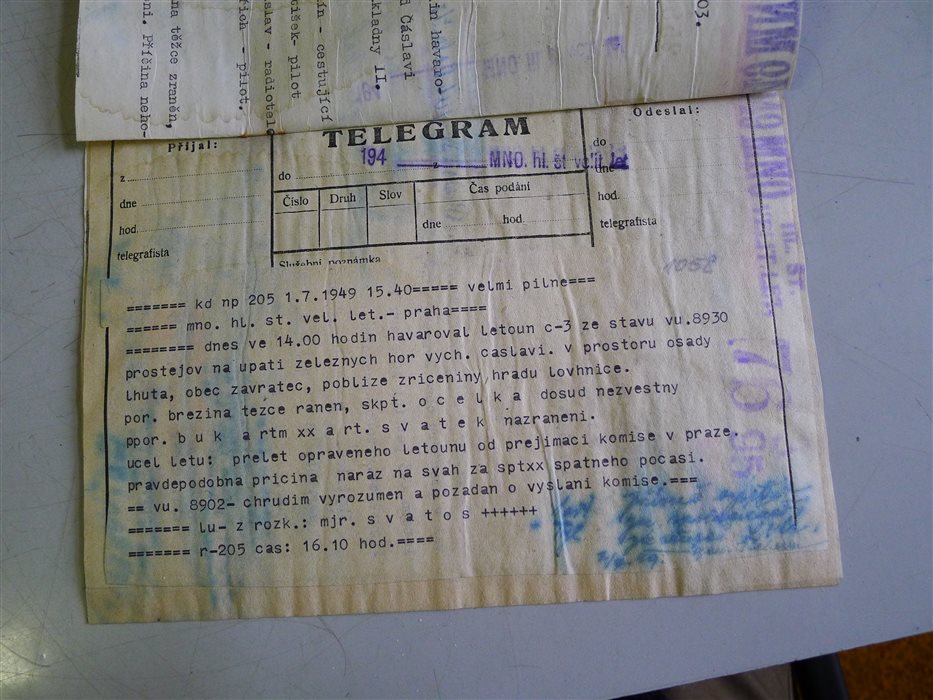 03.
in havaro-
d Čáslavi
kladny II.
ín - cestující
cišek- pilot
slav - radiotele
ich - pilot.
na těžce zraněn,
ni. Příčina neho-
TELEGRAM
Přijal:
Odeslal:
194
z
MNO. hl. št velit. let
z
do
do
dne
dne
hod.
hod.
telegrafista
telegrafista
Číslo
Druh
Slov
Čas podání
dne
hod.
Služební poznámka
1058
======= kd np 205 1.7.1949 15.40===== velmi pilne===
====== mno. hl. st. vel. let.- praha====
======== dnes ve 14.00 hodin havaroval letoun c-3 ze stavu vu.8930
prostejov na upati zeleznych hor vych. caslavi. v prostoru osady
lhuta, obec zavratec, poblize zriceniny hradu lovhnice.
por. brezina tezce ranen, skpt. o c e l k a dosud nezvestny
ppor. b u k a rtm xx a rt. s v a t e k nazraneni.
ucel letu: prelet opraveneho letounu od prejimaci komise v praze.
pravdepodobna pricina naraz na svah za sptxx spatneho pocasi.
== vu. 8902- chrudim vyrozumen a pozadan o vyslani komise.===
======= lu- z rozk.: mjr. s v a t o s ++++++
======= r-205 cas: 16.10 hod.====